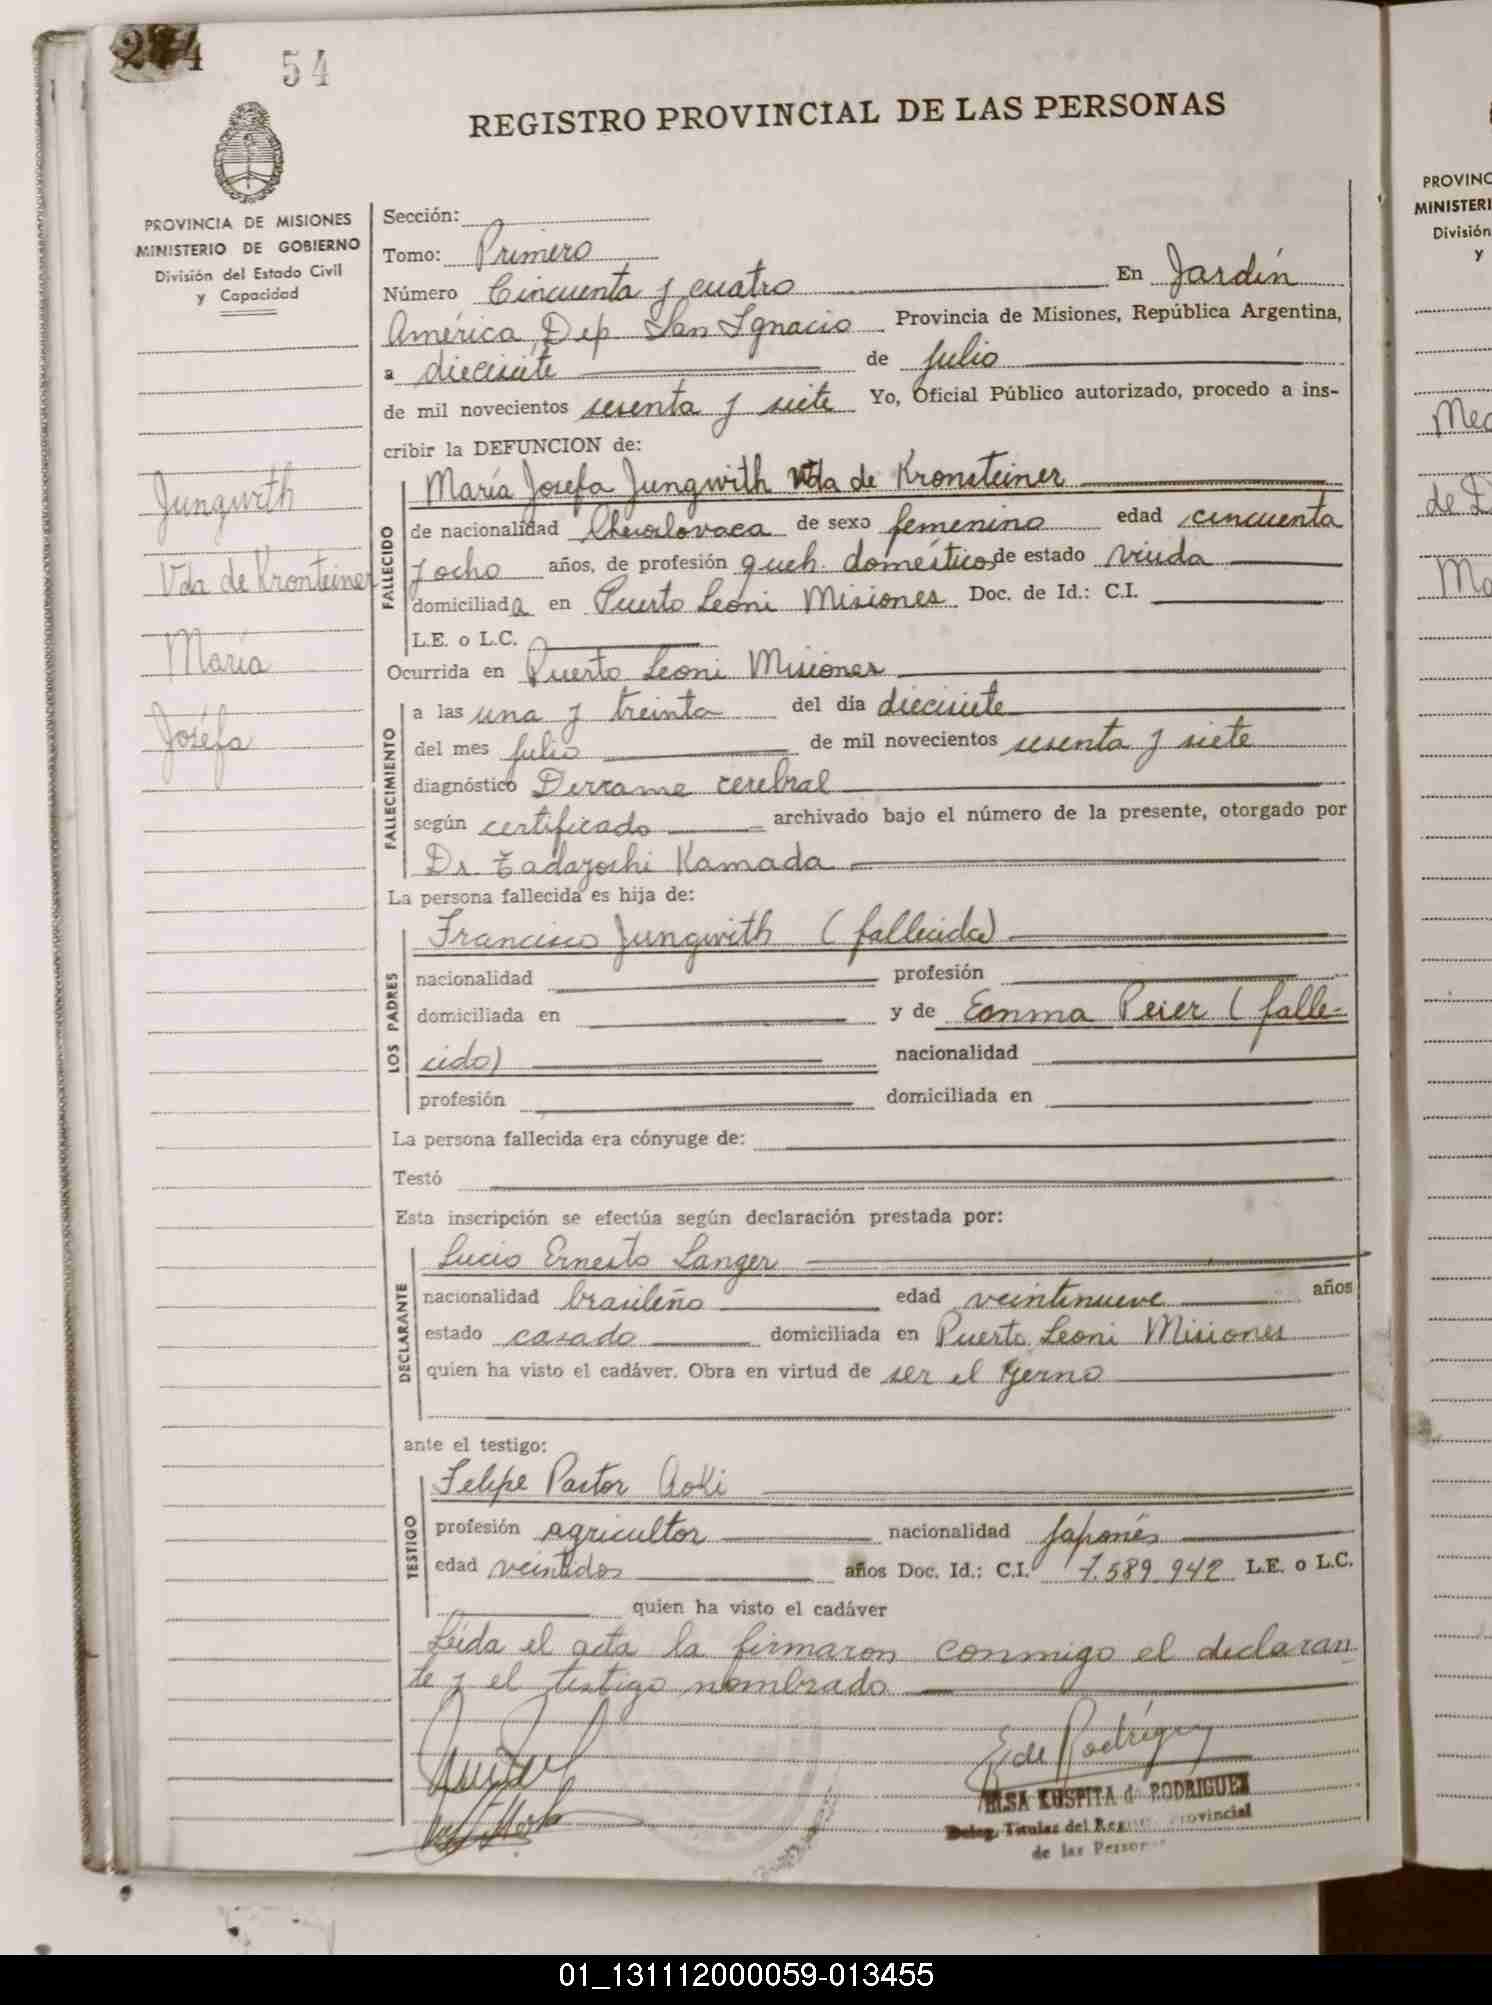 274
54
REGISTRO PROVINCIAL DE LAS PERSONAS
PROVINCIA DE MISIONES
MINISTERIO DE GOBIERNO
División del Estado Civil
y Capacidad
Jungwrth
Vda de Kronteiner
María
Joséfa
Sección:
Tomo: Primero
Número Cincuenta y cuatro En Jardín
América, Dep. San Ignacio Provincia de Misiones, República Argentina,
a diecisiete de julio
de mil novecientos sesenta y siete Yo, Oficial Público autorizado, procedo a ins-
cribir la DEFUNCION de:
FALLECIDO
María Josefa Jungwith Vda de Kronsteiner
de nacionalidad Checoslovaca de sexo femenino edad cincuenta
y ocho años, de profesión queh. domésticos de estado viuda
domiciliada en Puerto Leoni Misiones Doc. de Id.: C.I.
L.E. o L.C.
Ocurrida en Puerto Leoni Misiones
FALLECIMIENTO
a las una y treinta del día diecisiete
del mes julio de mil novecientos sesenta y siete
diagnóstico Derrame cerebral
según certificado archivado bajo el número de la presente, otorgado por
Dr. Tadayoshi Kamada
La persona fallecida es hija de:
LOS PADRES
Francisco Jungwith (fallecida)
nacionalidad profesión
domiciliada en y de Emma Peier (falle-
cido) nacionalidad
profesión domiciliada en
La persona fallecida era cónyuge de:
Testó
Esta inscripción se efectúa según declaración prestada por:
DECLARANTE
Lucio Ernesto Langer
nacionalidad brasileño edad veintinueve años
estado casado domiciliada en Puerto Leoni Misiones
quien ha visto el cadáver. Obra en virtud de ser el yerno
ante el testigo:
TESTIGO
Felipe Pastor Aoki
profesión agricultor nacionalidad Japonés
edad veintidos años Doc. Id.: C.I. 7.589.942 L.E. o L.C.
quien ha visto el cadáver
Leída el acta la firmaron conmigo el declaran-
te y el testigo nombrado
E de Rodríguez
ELSA KUSPITA de RODRIGUEZ
Deleg. Titular del Registro Provincial
de las Personas
PROVINC
MINISTERI
División
y
Mec
de
Ma
01_131112000059-013455